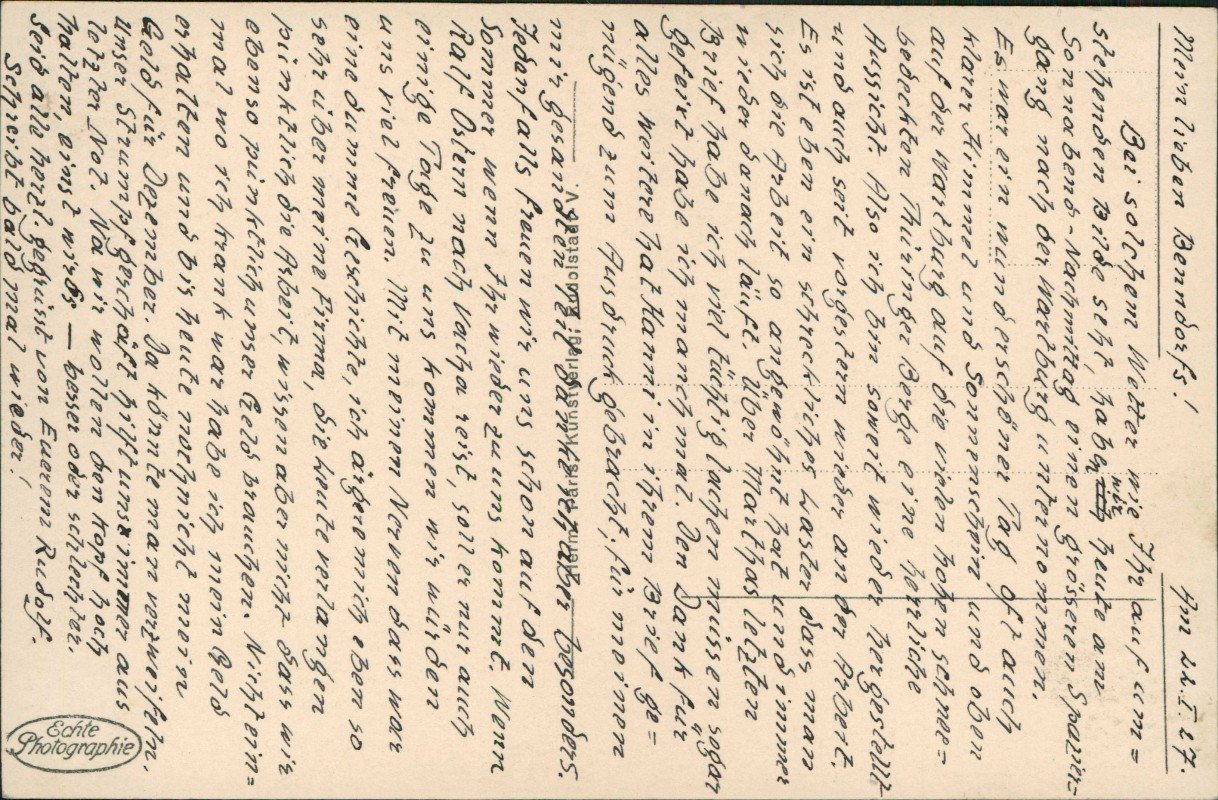 Mein lieben Benndorfs!
Am 22.I 27.
Bei solchem Wetter wie Ihr auf um=
stehenden Bilde seht, haben wir heute am
Sonnabend-Nachmittag einen grösseren Spazier=
gang nach der Wartburg unternommen.
Es war ein wunderschöner Tag oft auch
klarer Himmel und Sonnenschein und oben
auf der Wartburg auf die vielen hohen schnee=
bedeckten Thüringer Berge eine herrliche
Aussicht. Also ich bin soweit wieder hergestellt
und auch seit vorgestern wieder an der Arbeit.
Es ist eben ein schreckliches Laster dass man
sich die Arbeit so angewöhnt hat und immer
wieder danach läuft. Über Marthas letzten
Brief habe ich viel tüchtig lachen müssen sogar
gefeixt habe ich manchmal. Den Dank für
alles weitere hat Hanni in ihrem Brief ge=
nügend zum Ausdruck gebracht, für meinen
mir gesandten Teil danke ich aber besonders.
Jedenfalls freuen wir uns schon auf den
Sommer wenn Ihr wieder zu uns kommt. Wenn
Ralf Ostern nach Vacha reist, soll er nur auch
einige Tage zu uns kommen wir würden
uns viel freuen. Mit meinen Nerven das war
eine dumme Geschichte, ich ärgere mich eben so
sehr über meine Firma, die Leute verlangen
pünktlich die Arbeit, wissen aber nicht dass wir
ebenso pünktlich unser Geld brauchen. Nicht ein=
mal wo ich krank war habe ich mein Geld
erhalten und bis heute noch nicht mein
Geld für Dezember. Da könnte man verzweifeln.
Unser Strumpfgeschäft hilft uns immer aus
letzter Not. Na wir wollen den Kopf hoch
halten, einst wirds — besser oder schlechter.
Seid alle herzl. gegrüst von Euerem Rudolf.
Schreibt bald mal wieder!
Hermann Paris, Kunstverlag, Rudolstadt V.
Echte
Photographie